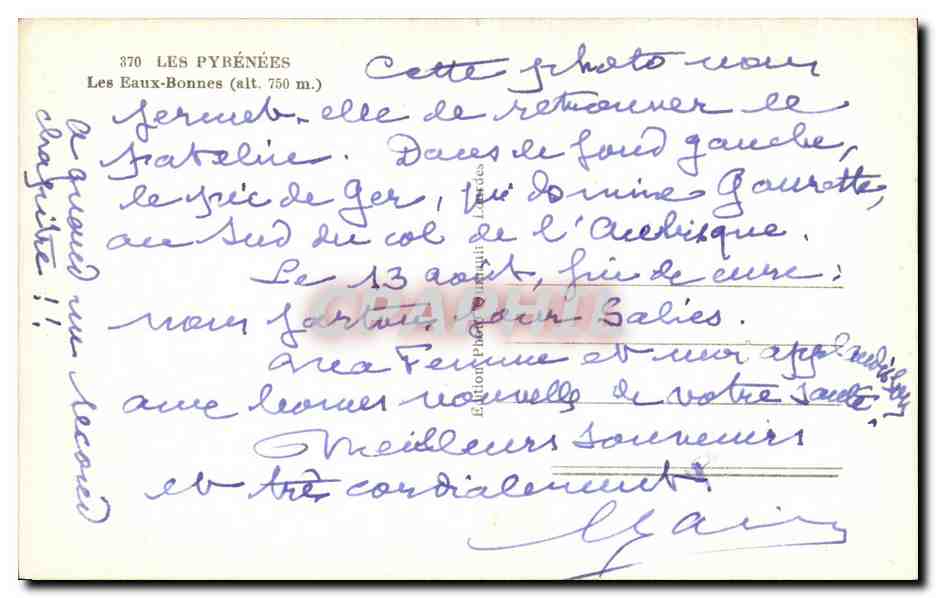 370 LES PYRÉNÉES
Les Eaux-Bonnes (alt. 750 m.)
Cette photo vous
permet-elle de retrouver le
Dans le fond gauche,
le pic de Ger, qui domine Gourette,
au Sud du col de l'Aubisque.
Le 13 août, fin de cure :
nous partons pour Salies.
Ma Femme et moi applaudissons
aux bonnes nouvelles de votre santé.
Meilleurs souvenirs
et très cordialement.
A quand un second
chapitre !!
Edition Photo Lourdes
CPAPHIL